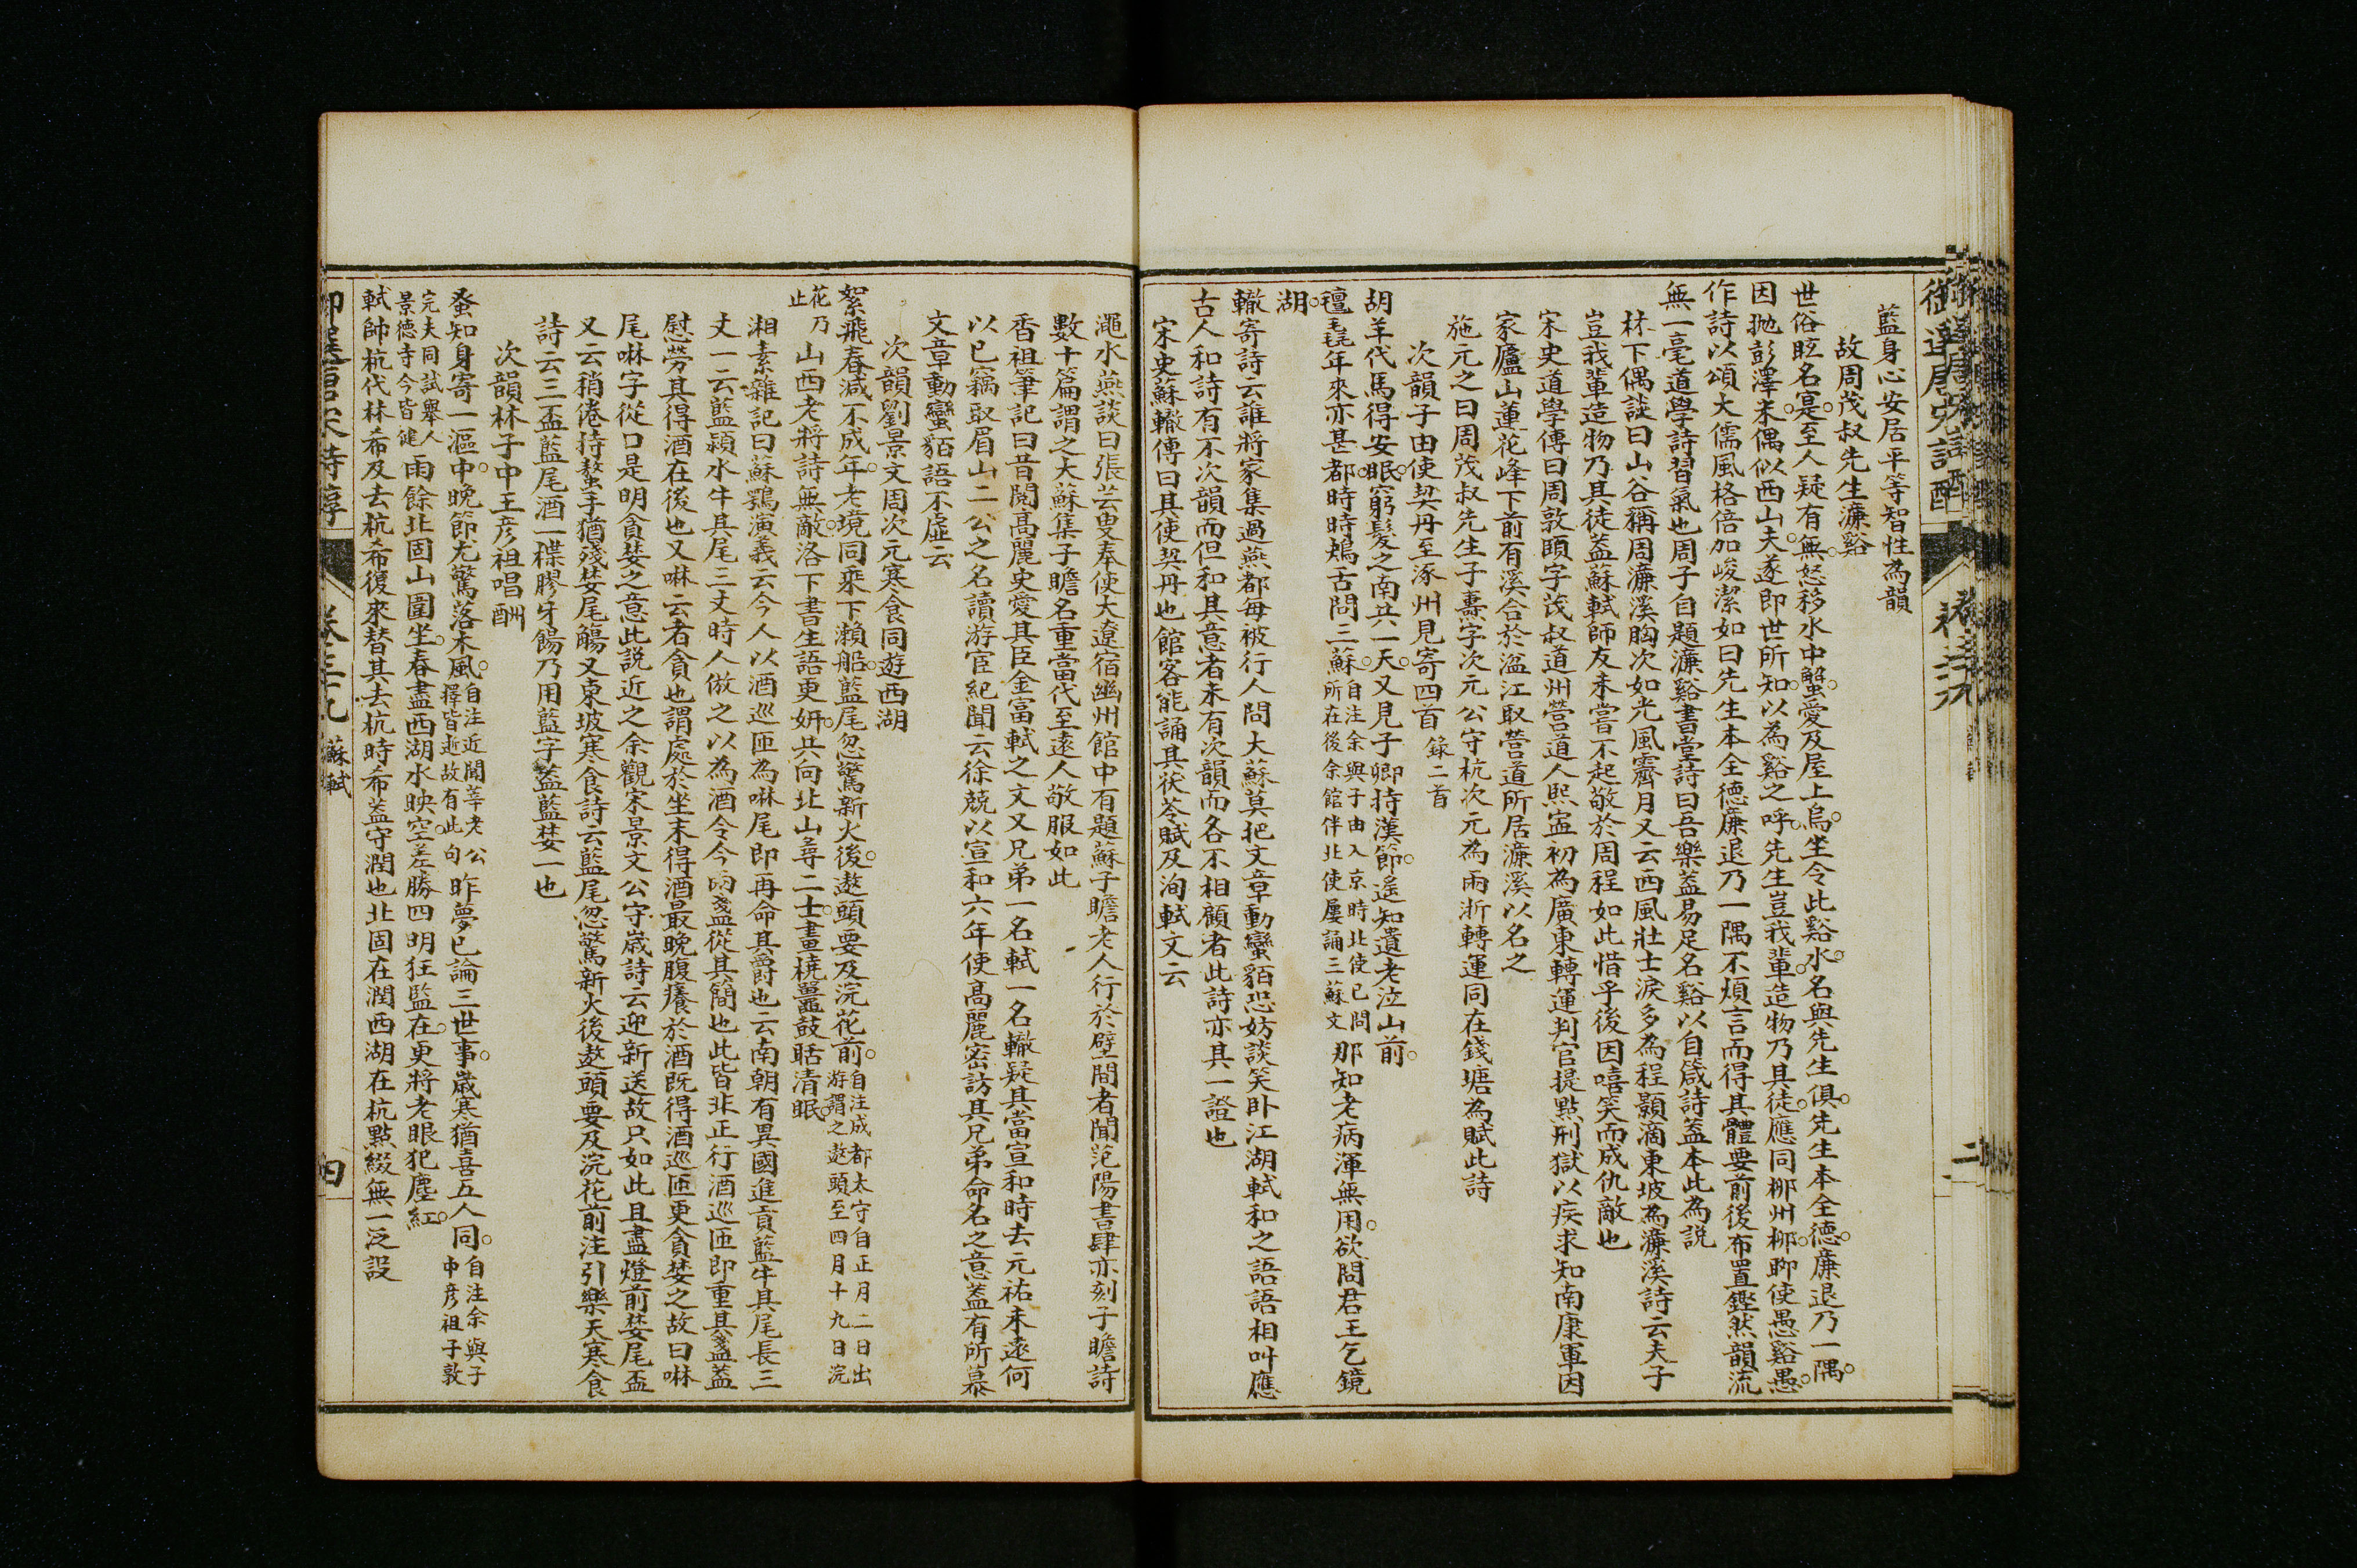 藍身心安居平等智性為韻
故周茂叔先生濂谿
世俗眩名寔至人疑有無怒移水中蟹愛及屋上烏坐令此谿水名與先生俱先生本全德廉退乃一隅
因拋彭澤米偶似西山夫遂即世所知以為谿之呼先生豈我輩造物乃其徒應同柳州柳聊使愚谿愚
作詩以頌大儒風格倍加峻潔如曰先生本全德廉退乃一隅不煩言而得其體要前後布置鏗然韻流
無一毫道學詩習氣也周子自題濂谿書堂詩曰吾樂蓋易足名谿以自箴詩蓋本此為說
林下偶談曰山谷稱周濂溪胸次如光風霽月又云西風壯士淚多為程顥滴東坡為濂溪詩云夫子
豈我輩造物乃其徒蓋蘇軾師友未嘗不起敬於周程如此惜乎後因嘻笑而成仇敵也
宋史道學傳曰周敦頤字茂叔道州營道人熙寧初為廣東轉運判官提點刑獄以疾求知南康軍因
家廬山蓮花峰下前有溪合於湓江取營道所居濂溪以名之
施元之曰周茂叔先生子燾字次元公守杭次元為兩浙轉運同在錢塘為賦此詩
次韻子由使契丹至涿州見寄四首 錄二首
胡羊代馬得安眠窮髮之南共一天又見子卿持漢節遙知遺老泣山前
氊毳年來亦甚都時時鴃舌問三蘇自注余與子由入京時北使已問所在後余館伴北使屢誦三蘇文那知老病渾無用欲問君王乞鏡
湖
轍寄詩云誰將家集過燕都每被行人問大蘇莫把文章動蠻貊恐妨談笑臥江湖軾和之語語相叫應
古人和詩有不次韻而但和其意者未有次韻而各不相顧者此詩亦其一證也
宋史蘇轍傳曰其使契丹也館客能誦其茯苓賦及洵軾文云
澠水燕談曰張芸叟奉使大遼宿幽州館中有題蘇子瞻老人行於壁間者聞范陽書肆亦刻子瞻詩
數十篇謂之大蘇集子瞻名重當代至遠人敬服如此
香祖筆記曰昔閱高麗史愛其臣金富軾之文又兄弟一名軾一名轍疑其當宣和時去元祐未遠何
以已竊取眉山二公之名讀游宦紀聞云徐兢以宣和六年使高麗密訪其兄弟命名之意蓋有所慕
文章動蠻貊語不虛云
次韻劉景文周次元寒食同遊西湖
絮飛春減不成年老境同乘下瀨船藍尾忽驚新火後遨頭要及浣花前自注成都太守自正月二日出游謂之遨頭至四月十九日浣
花乃止山西老將詩無敵洛下書生語更妍共向北山尋二士畫橈鼉鼓聒清眠
湘素雜記曰蘇鶚演義云今人以酒巡匝為啉尾即再命其爵也云南朝有異國進貢藍牛其尾長三
丈一云藍潁水牛其尾三丈時人倣之以為酒令今兩盞從其簡也此皆非正行酒巡匝即重其盞蓋
慰勞其得酒在後也又啉云者貪也謂處於坐末得酒最晚腹癢於酒既得酒巡匝更貪婪之故曰啉
尾啉字從口是明貪婪之意此說近之余觀宋景文公守歲詩云迎新送故只如此且盡燈前婪尾盃
又云稍倦持螯手猶殘婪尾觴又東坡寒食詩云藍尾忽驚新火後遨頭要及浣花前注引樂天寒食
詩云三盃藍尾酒一楪膠牙餳乃用藍字蓋藍婪一也
次韻林子中王彥祖唱酬
蚤知身寄一漚中晚節尤驚落木風自注近聞莘老公擇皆逝故有此句昨夢已論三世事歲寒猶喜五人同自注余與子中彥祖子敦
完夫同試舉人景德寺今皆健雨餘北固山圍坐春盡西湖水映空差勝四明狂監在更將老眼犯塵紅
軾帥杭代林希及去杭希復來替其去杭時希蓋守潤也北固在潤西湖在杭點綴無一泛設
蘇軾